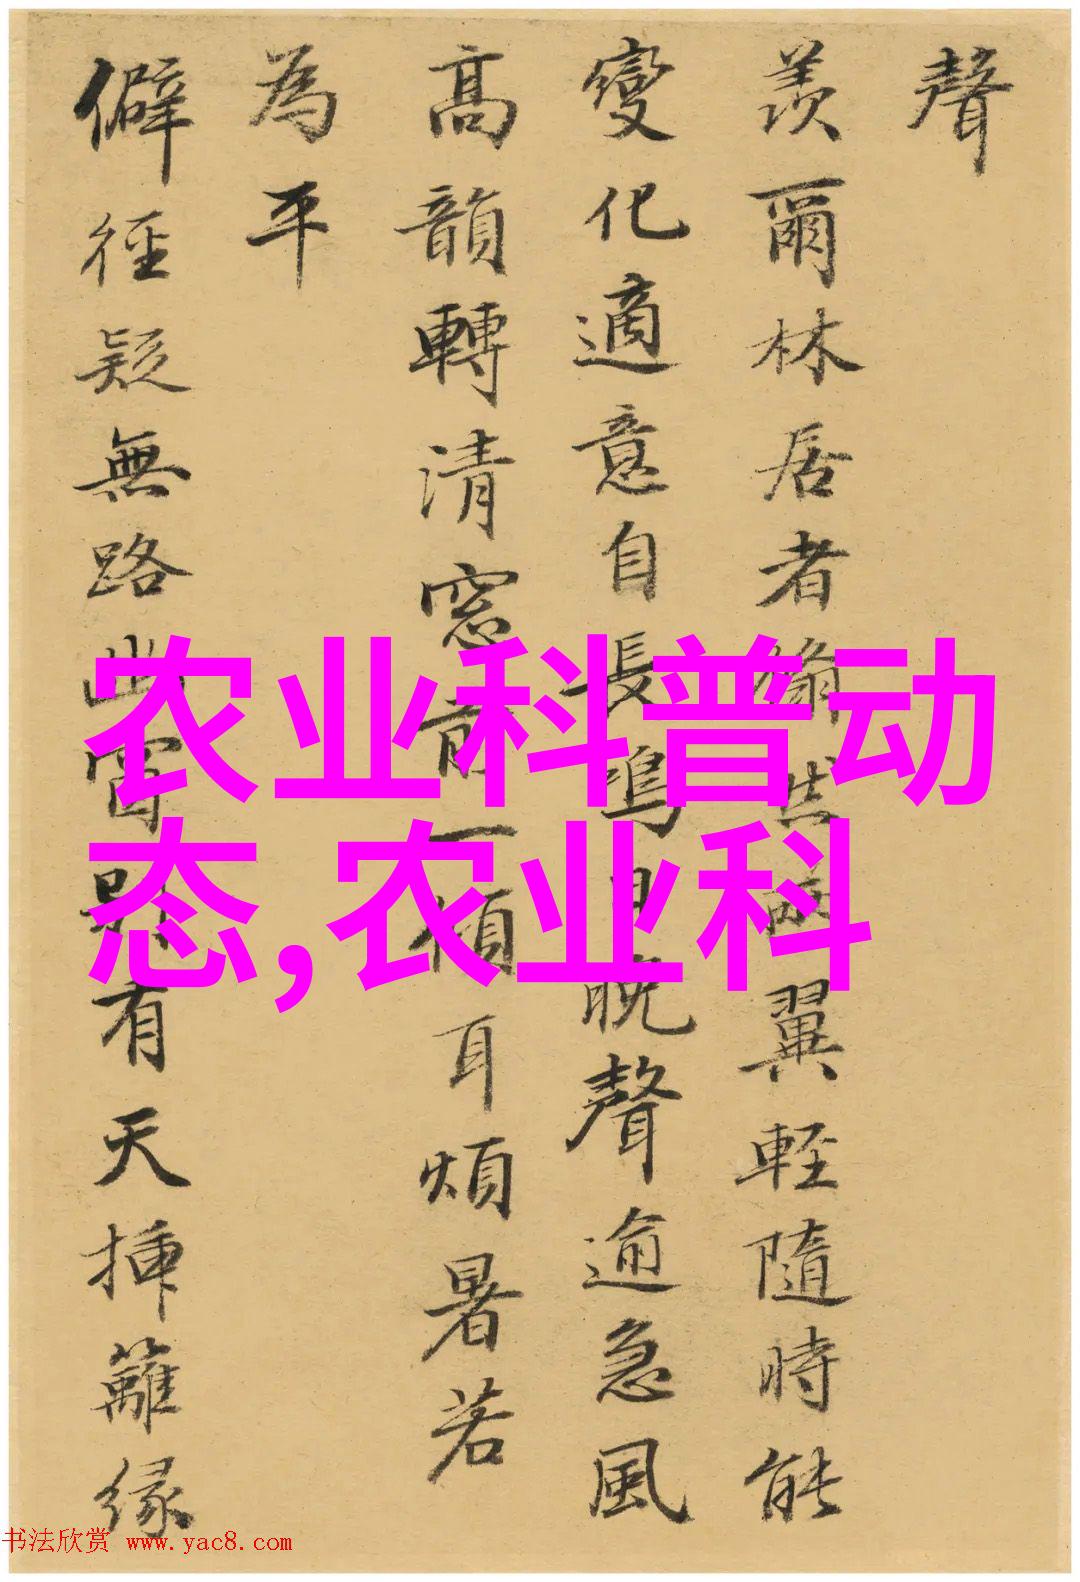 聲
羨爾林居者翛然翼輕隨時能
變化適意自長鳴早晚聲逾急風
高韻轉清窓前一傾耳煩暑若
為平
僻徑疑無路幽別有天插籬緣
农业科普动
态,农业科
书法欣赏 www.yac8.com